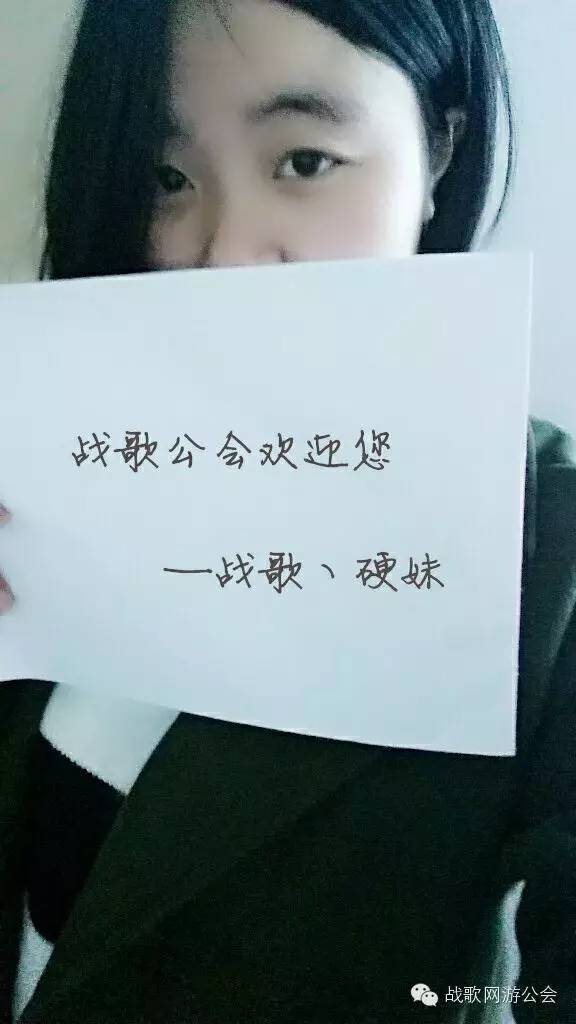 战歌公会欢迎您
—战歌丶硬妹
战歌网游公会